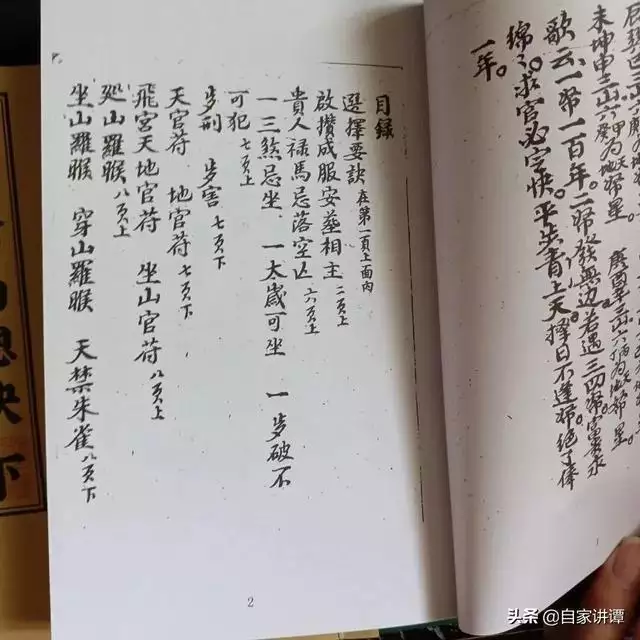 未坤申三山
歌云一帝一百年。二帝發無边。若遇三四帝。富貴永
綿々。求官必定快。平步青上天。擇日不逢帝絕
一年。
1
目録
選擇要訣 在第一頁上面内
啟攢成服安葬相主 二頁上
貴人禄馬忌落空亡 六頁上
一三煞忌坐 一太歲可坐 一歲破不
可犯 七頁上
歲刑 歲害 七頁下
天官符 地官符 七頁下
飛宮天地官符 坐山官符 八頁上
廵山羅睺 八頁上
坐山羅睺 穿山羅睺 天禁朱雀 八頁下
2
訣下
头条 @自家讲谭